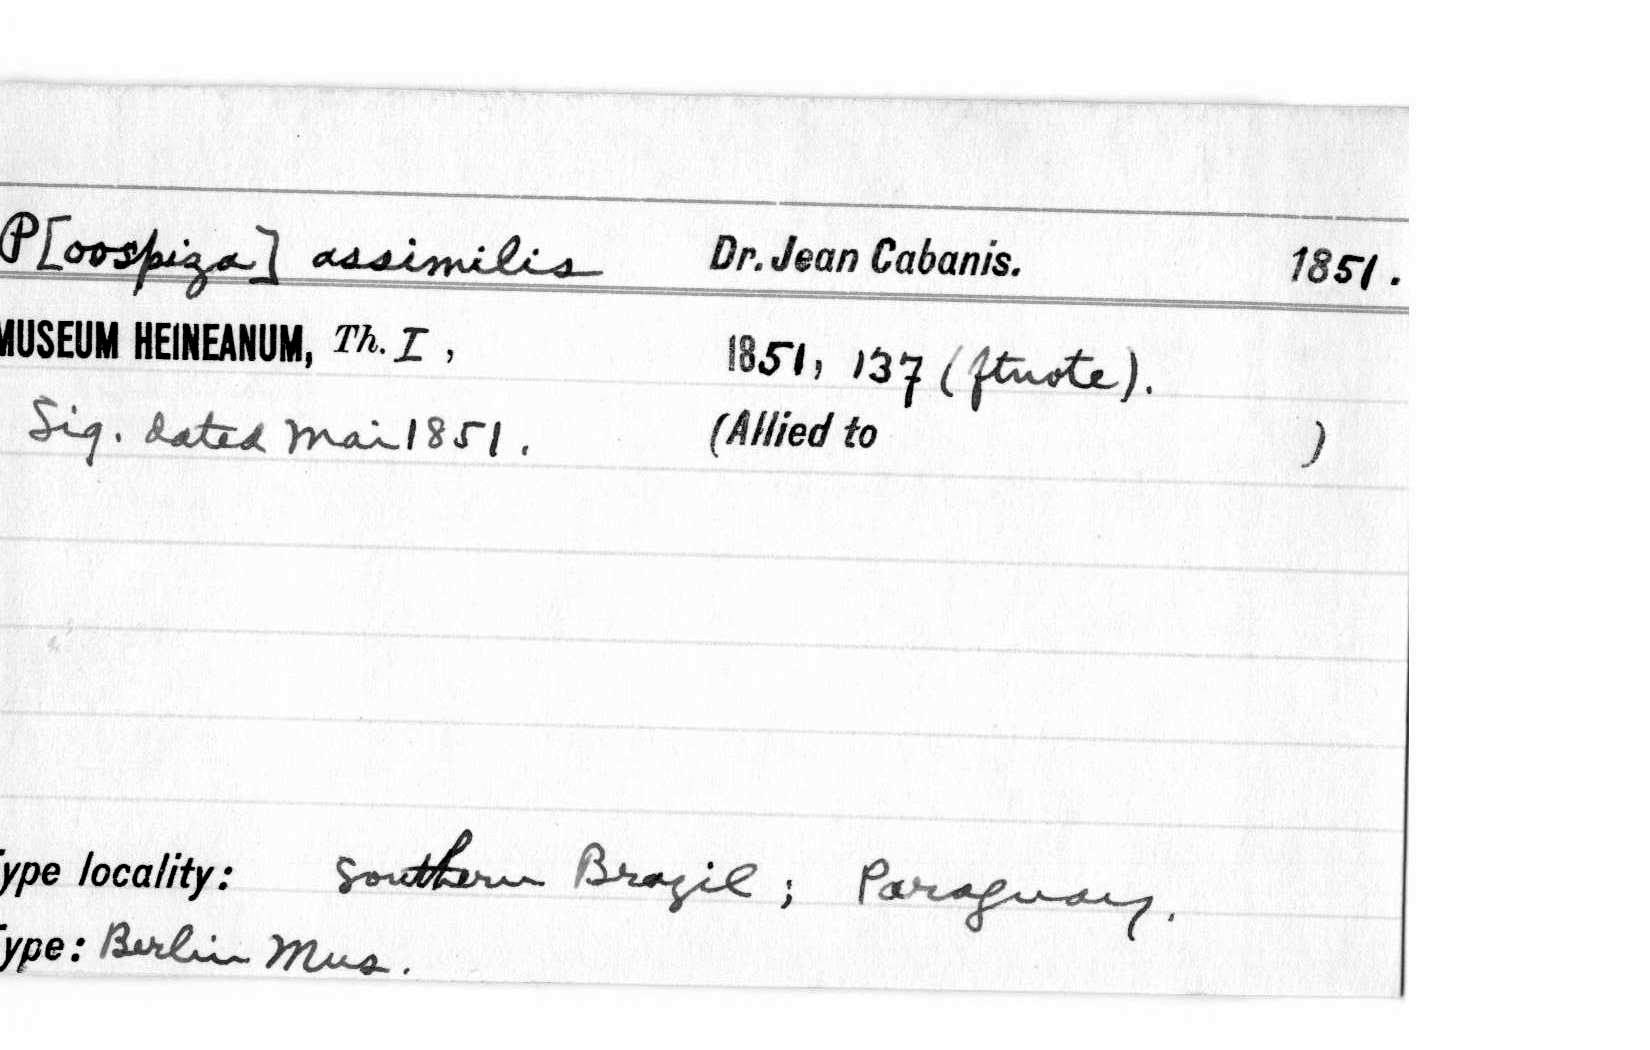 P[oospiza] assimilis Dr. Jean Cabanis. 1851.
MUSEUM HEINEANUM, Th. I, 1851, 137 (ftnote).
Sig. dated Mai 1851. (Allied to )
Type locality: Southern Brazil; Paraguay.
Type: Berlin Mus.